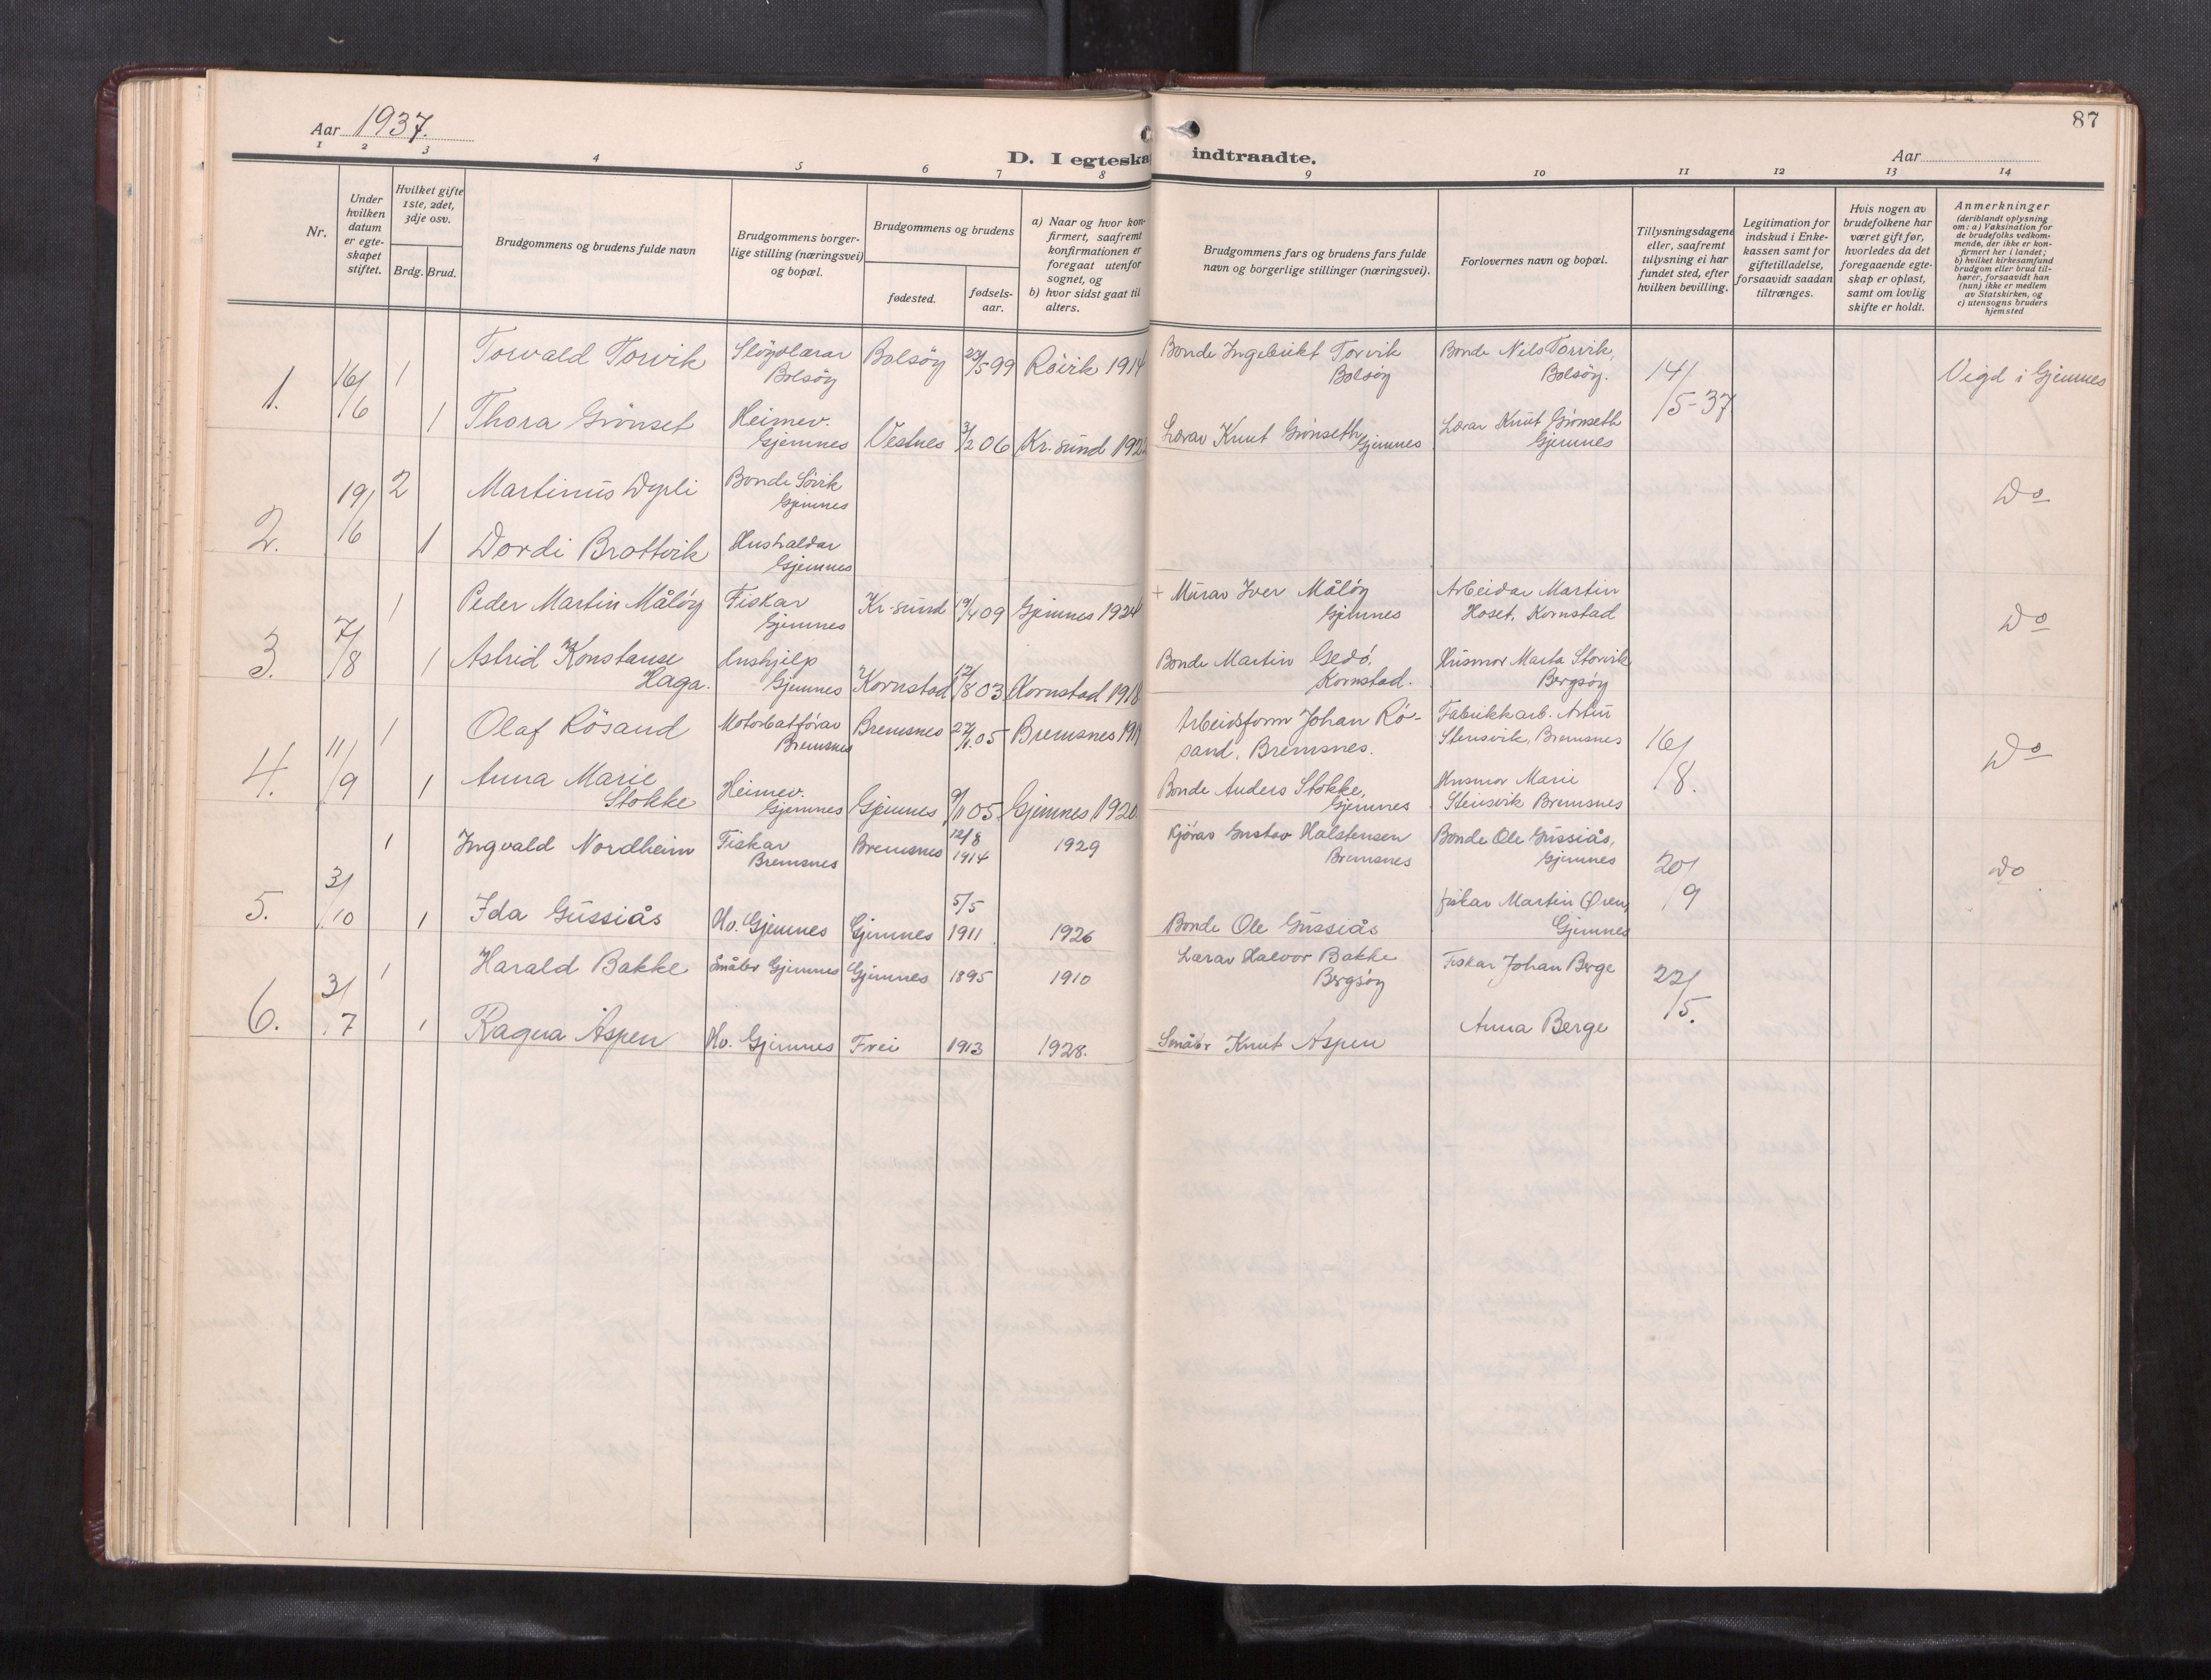 87
Aar 1937.
Aar
D. I egteska
indtraadte.
1 2 3 4 5 6 7 8 9 10 11 12 13 14
Nr.
Under
hvilken
datum
er egte-
skapet
stiftet.
Hvilket gifte
1ste, 2det,
3dje osv.
Brdg. Brud.
Brudgommens og brudens fulde navn
Brudgommens borger-
lige stilling (næringsvei)
og bopæl.
Brudgommens og brudens
fødested.
fødsels-
aar.
a) Naar og hvor kon-
firmert, saafremt
konfirmationen er
foregaat utenfor
sognet, og
b) hvor sidst gaat til
alters.
Brudgommens fars og brudens fars fulde
navn og borgerlige stillinger (næringsvei).
Forlovernes navn og bopæl.
Tillysningsdagene
eller, saafremt
tillysning ei har
fundet sted, efter
hvilken bevilling.
Legitimation for
indskud i Enke-
kassen samt for
giftetilladelse,
forsaavidt saadan
tiltrænges.
Hvis nogen av
brudefolkene har
været gift før,
hvorledes da det
foregaaende egte-
skap er opløst,
samt om lovlig
skifte er holdt.
Anmerkninger
(deriblandt oplysning
om: a) Vaksination for
de brudefolks vedkom-
mende, der ikke er kon-
firmert her i landet;
b) hvilket kirkesamfund
brudgom eller brud til-
hører, forsaavidt han
(hun) ikke er medlem
av Statskirken, og
c) utensogns bruders
hjemsted
1. 16/6 1 Torvald Torvik Sløydlærar Bolsöy Bolsöy 23/5 99 Röirik 1914 Bonde Ingebrikt Torvik Bolsöy Bonde Nils Torvik, Bolsöy. 14/5-37 Vigd i Gjemnes
1 Thora Grönset Heimev. Gjemnes Vestnes 3/2 06 Kr.sund 1922 Lærar Knut Grönseth Gjemnes Lærar Knut Grönseth Gjemnes
2. 19/6 2 Martinus Dyrli Bonde Sövik Gjemnes Do
1 Dordi Brattvik Hushaldar Gjemnes
3. 7/8 1 Peder Martin Målöy Fiskar Gjemnes Kr-sund 19/4 09 Gjemnes 1924 + Murar Iver Målöy Gjemnes Arbeidar Martin Hoset, Kornstad Do
1 Astrid Konstanse Haga. Hushjelp Gjemnes Kornstad 12/8 03 Kornstad 1918 Bonde Martin Gedö, Kornstad. Husmor Marta Storvik Bergsöy
4. 11/9 1 Olaf Rösand Motorbatförar Bremsnes Bremsnes 27/1.05 Bremsnes 1919 Arbeidsform Johan Rö-
sand, Bremsnes. Fabrikkarb. Stensvik, Bremsnes 16/8. Do
1 Anna Marie Stokke Heimev. Gjemnes Gjemnes 9/11 05. Gjemnes 1920. Bonde Anders Stokke, Gjemnes Husmor Marie Stensvik Bremsnes
5. 3/10 1 Ingvald Nordheim Fiskar Bremsnes Bremsnes 12/8 1914 1929 Kjörar Gustav Halstensen Bremsnes Bonde Ole Gussiås, Gjemnes 20/9 do
1 Ida Gussiås Hv. Gjemnes Gjemnes 5/5 1911 1926 Bonde Ole Gussiås fiskar Martin Øren, Gjemnes
6. 3/7 1 Harald Bakke Småbr Gjemnes Gjemnes 1895 1910 Lærar Halvor Bakke Bergsöy Fiskar Johan Berge 22/5.
1 Ragna Aspen Hv. Gjemnes Frei 1913 1928. Småbr Knut Aspen Anna Berge